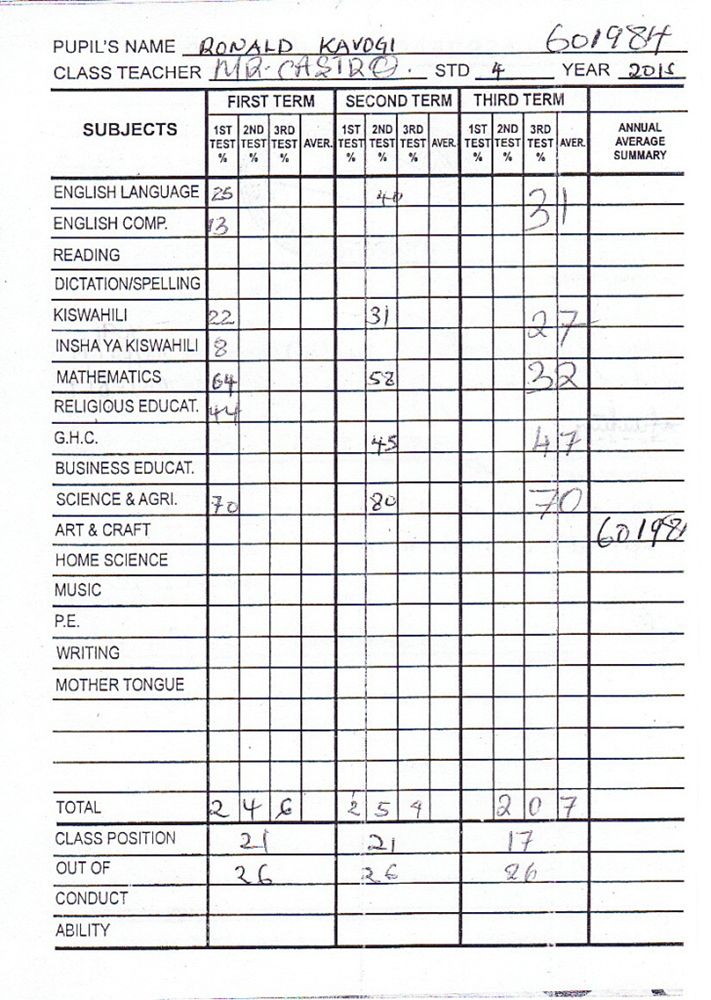 PUPIL'S NAME RONALD KAVOGI 601984
CLASS TEACHER MR. CASTRO. STD 4 YEAR 2015
SUBJECTS FIRST TERM SECOND TERM THIRD TERM ANNUAL AVERAGE SUMMARY
1ST TEST % 2ND TEST % 3RD TEST % AVER. 1ST TEST % 2ND TEST % 3RD TEST % AVER. 1ST TEST % 2ND TEST % 3RD TEST % AVER.
ENGLISH LANGUAGE 25 40 31
ENGLISH COMP. 13
READING
DICTATION/SPELLING
KISWAHILI 22 31 27
INSHA YA KISWAHILI 8
MATHEMATICS 64 58 32
RELIGIOUS EDUCAT. 44
G.H.C. 45 47
BUSINESS EDUCAT.
SCIENCE & AGRI. 70 80 70
ART & CRAFT 601984
HOME SCIENCE
MUSIC
P.E.
WRITING
MOTHER TONGUE
TOTAL 2 4 6 2 5 4 2 0 7
CLASS POSITION 21 21 17
OUT OF 26 26 26
CONDUCT
ABILITY